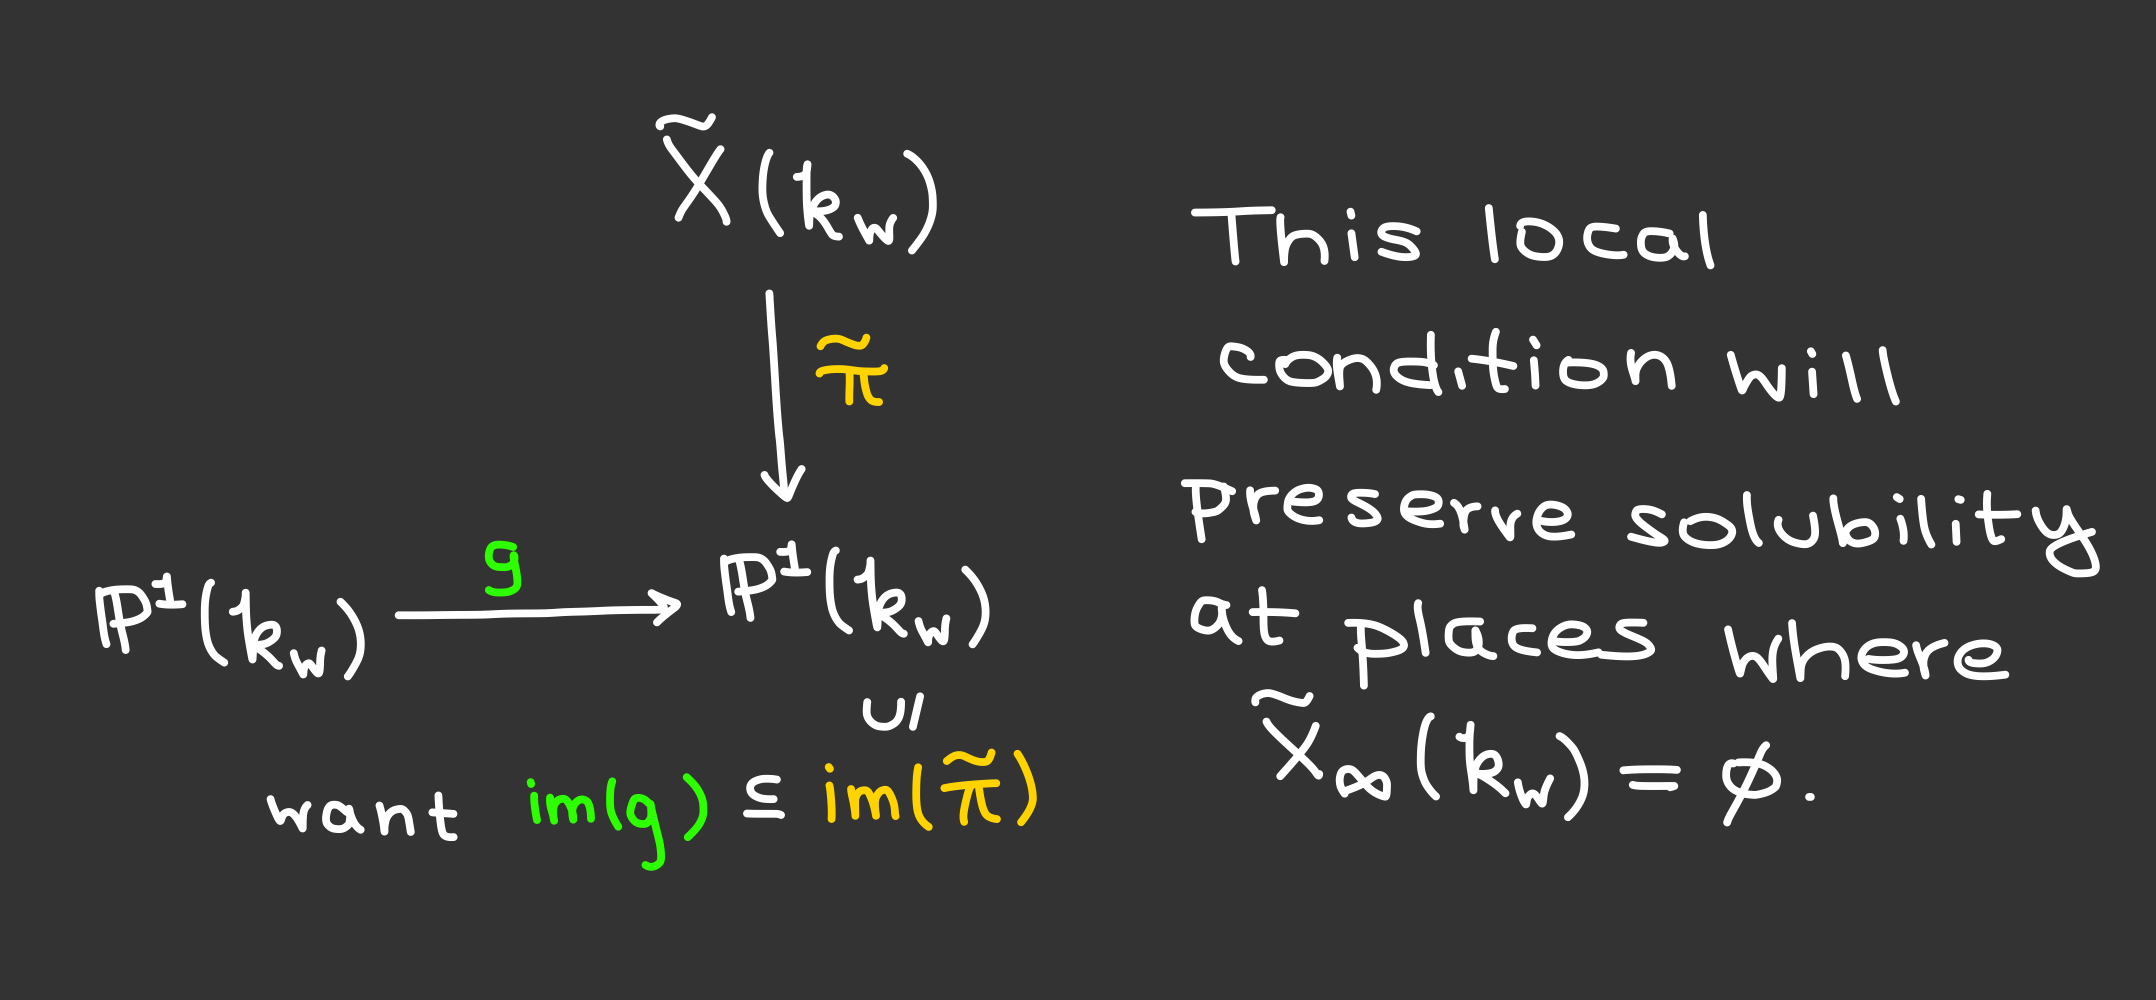 X̃(k_w)
π̃
g
ℙ¹(k_w) ⟶ ℙ¹(k_w)
∪|
want im(g) ⊆ im(π̃)
This local
condition will
preserve solubility
at places where
X̃_∞(k_w) = ∅.